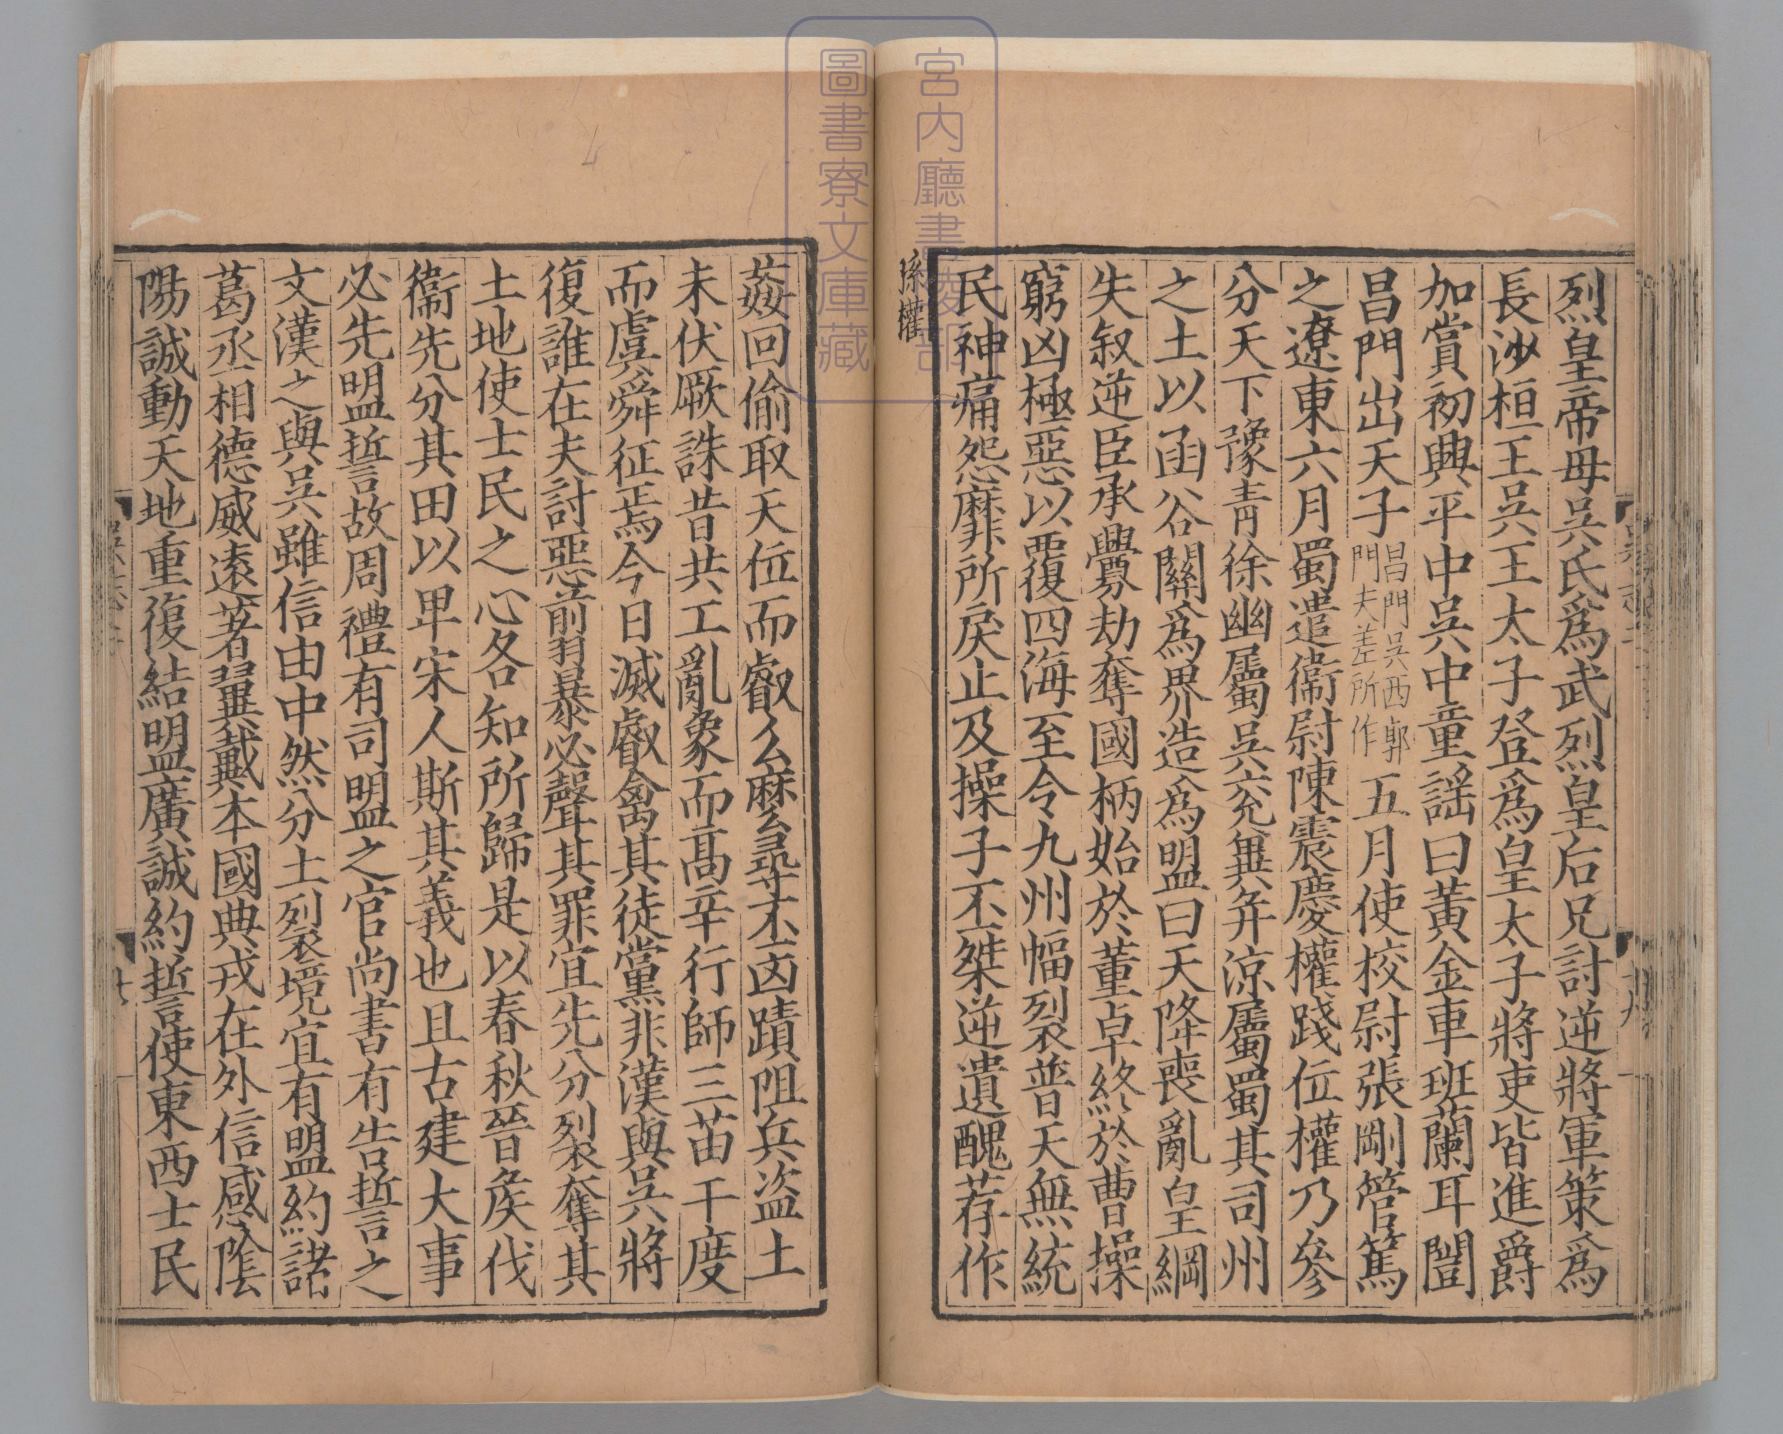 烈皇帝母吳氏爲武烈皇后兄討逆將軍策爲
長沙桓王吳王太子登爲皇太子將吏皆進爵
加賞初興平中吳中童謡曰黃金車班蘭耳闓
昌門出天子昌門吳西郭門夫差所作五月使校尉張剛管篤
之遼東六月蜀遣衞尉陳震慶權踐位權乃參
分天下豫青徐幽屬吳兖兾并涼屬蜀其司州
之土以函谷關爲界造爲盟曰天降喪亂皇綱
失叙逆臣承釁劫奪國柄始於董卓終於曹操
窮凶極惡以覆四海至令九州幅裂普天無統
民神痛怨靡所戾止及操子丕桀逆遺醜荐作
孫權
姦回偷取天位而叡么麽尋丕凶蹟阻兵盜土
未伏厥誅昔共工亂象而髙辛行師三苗干度
而虞舜征焉今日滅叡禽其徒黨非漢與吳將
復誰在夫討惡翦暴必聲其罪宜先分裂奪其
土地使士民之心各知所歸是以春秋晉矦伐
衞先分其田以畀宋人斯其義也且古建大事
必先盟誓故周禮有司盟之官尚書有告誓之
文漢之與吳雖信由中然分土裂境宜有盟約諸
葛丞相德威遠著翼戴本國典戎在外信感隂
陽誠動天地重復結盟廣誠約誓使東西士民
宮内廳書陵部
圖書寮文庫藏